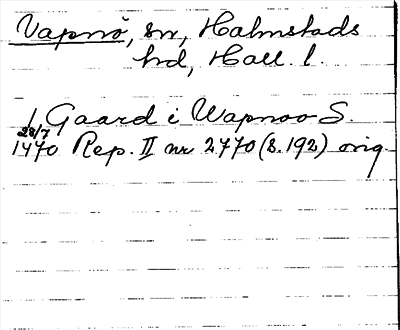 Vapnö, sn, Halmstads
hd, Hall. l.
1 Gaard i Wapnoo S.
28/7
1470 Rep. II nr 2770 (S. 192) orig.